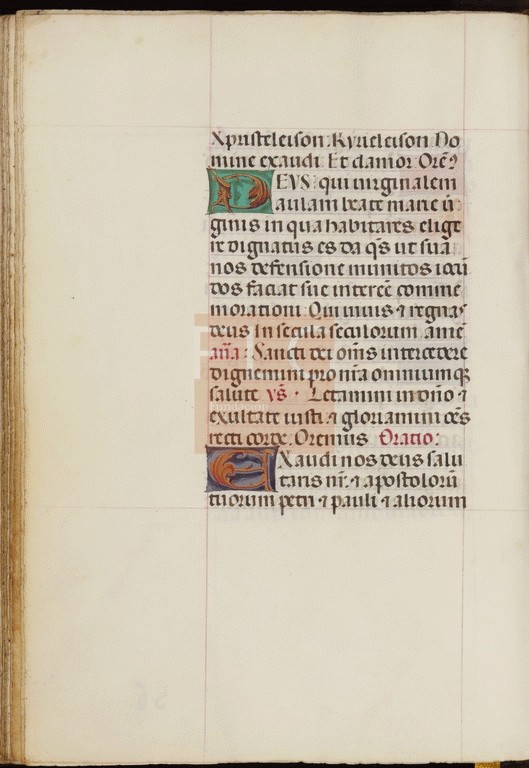 Xpristeleison. Kyrieleison Do
mine exaudi. Et clamor. Orẽꝰ
DEVS qui uirginalem
aulam beate marie ũ
ginis in qua habitares elige
re dignatus es da q̃s ut sua
nos defensione munitos iocũ
dos faciat sue intereẽ comme
morationi. Qui uiuis ⁊ regnas
deus In secula seculorum amẽ
aña: Sancti dei om̃s intercedere
dignemini pro nr̃a omniumqꝫ
salute vs̃. Letamini in dño ⁊
exultate iusti. ⁊ gloriamini oẽs
recti corde. Oremus Oratio:
EXaudi nos deus salu
taris nr̃. ⁊ apostolorũ
tuorum petri ⁊ pauli ⁊ aliorum